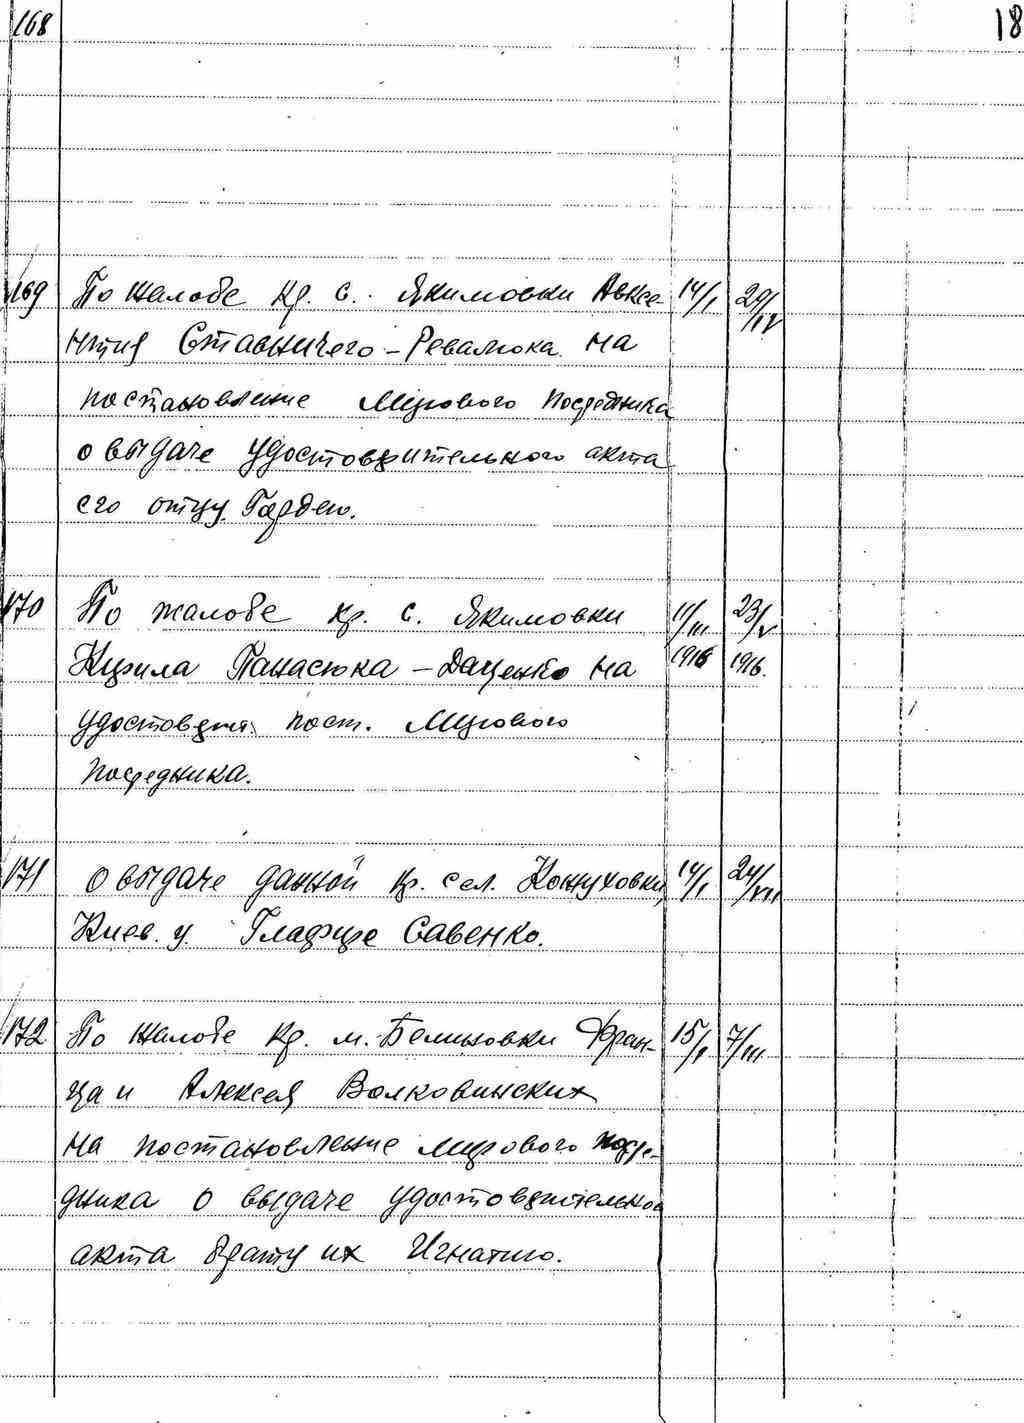 168 18
169 По жалобе кр. с. Якимовки Авксе- 14/I 29/IV
нтия Ставничего-Ревалюка на
постановление Мирового Посредника
о выдаче удостоверительного акта
его отцу Гордею.
170 По жалобе кр. с. Якимовки 11/III 23/V
Кирила Панасюка-Даценко на 1916 1916.
удостоверит. пост. Мирового
посредника.
171 о выдаче данной кр. сел. Кожуховки, 14/I 24/VIII
Киев. у. Глафире Савенко.
172 По жалобе кр. м. Белиловки Фран- 15/I 7/III
ца и Алексея Волковинских
на постановление мирового посре-
дника о выдаче удостоверительного
акта брату их Игнатию.